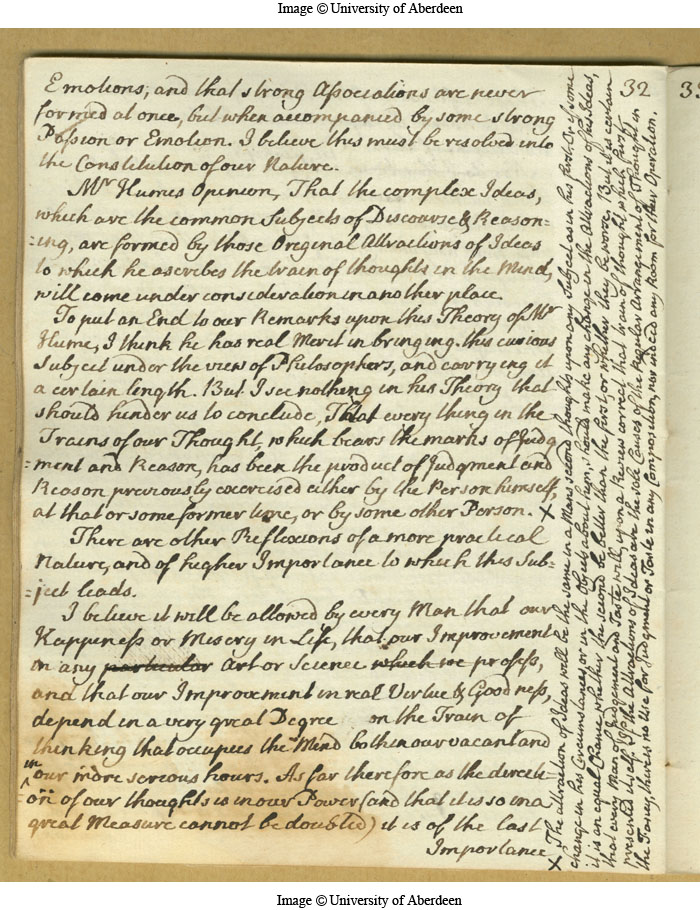 Image © University of Aberdeen
32
Emotions; and that strong Associations are never
formed at once, but when accompanied by some strong
Passion or Emotion. I believe this must be resolved into
the Constitution of our Nature.
Mr Humes Opinion, That the complex Ideas,
which are the common Subjects of Discourse & Reason-
-ing, are formed by those Original Attractions of Ideas
to which he ascribes the train of thoughts in the Mind,
will come under consideration in another place.
To put an End to our Remarks upon this Theory of Mr
Hume, I think he has real Merit in bringing this curious
Subject under the view of Philosophers, and carrying it
a certain length. But I see nothing in his Theory that
should hinder us to conclude, That every thing in the
Trains of our Thought, which bears the marks of Judg
=ment and Reason, has been the product of Judgment and
Reason previously exercised either by the Person himself,
at that or some former time, or by some other Person. X
There are other Reflexions of a more practical
Nature, and of higher Importance to which this Sub-
=ject leads.
I believe it will be allowed by every Man that our
Happiness or Misery in Life, that our Improvement
in any particular Art or Science which we profess,
and that our Improvement in real Virtue & Goodness,
depend in a very great Degree on the Train of
thinking that occupies the Mind both in our vacant and
in our more serious hours. As far therefore as the directi=
=on of our thoughts is in our Power (and that it is so in a
great Measure cannot be doubted) it is of the last
Importance
X The attraction of Ideas will be the same in a Mans second thoughts upon any Subject as in his first. Or if some
change in his Circumstances, or in the Objects about him, should make any change in the Attractions of his Ideas,
it is an equal Chance whether the second be better than the first, or whether they be worse. But it is certain
that every Man of Judgement and Taste will, upon a Review correct that train of thought, which first
presented itself. If the Attractions of Ideas are the sole Causes of the regular Arrangement of Thought in
the Fancy, there is no Use for Judgment or Taste in any Composition, nor indeed any Room for their Operation.
Image © University of Aberdeen